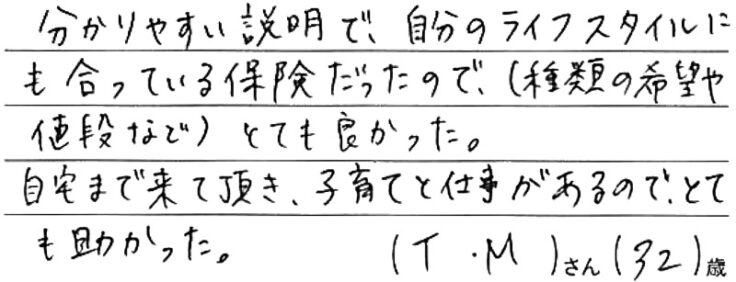 分かりやすい説明で、自分のライフスタイルに
も合っている保険だったので、(種類の希望や
値段など)とても良かった。
自宅まで来て頂き、子育てと仕事があるので、とて
も助かった。 (T・M)さん(32)歳